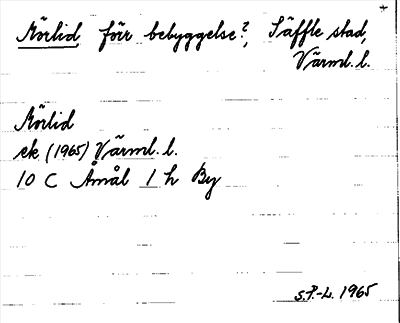 Mörlid förr bebyggelse?, Säffle stad,
Värml. l.
Mörlid
ek (1965) Värml. l.
10 C Åmål 1 h By
S.P.-L. 1965